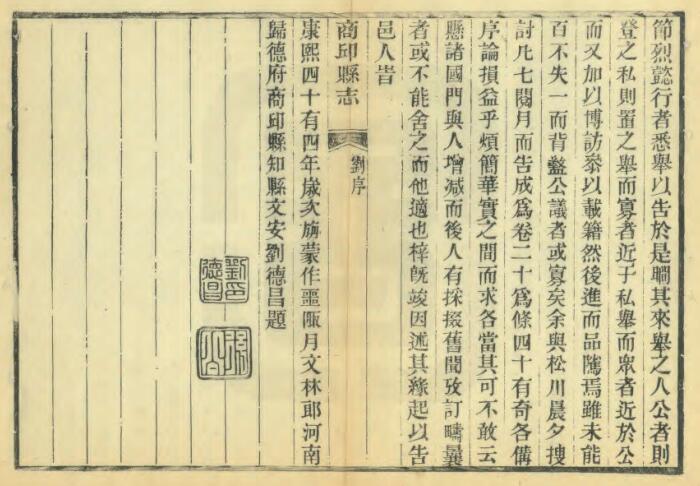 節烈懿行者悉舉以告於是瞯其來舉之人公者則
登之私則置之舉而寡者近于私舉而眾者近於公
而又加以博訪叅以載籍然後進而品隲焉雖未能
百不失一而背盭公議者或寡矣余與松川晨夕搜
討凡七閱月而告成爲卷二十爲條四十有奇各備
序論損益乎煩簡華實之間而求各當其可不敢云
懸諸國門與人增減而後人有採掇舊聞攷訂疇曩
者或不能舍之而他適也梓旣竣因述其緣起以告
邑人旹
商邱縣志
劉序
康熙四十有四年歲次旃蒙作噩陬月文林郎河南
歸德府商邱縣知縣文安劉德昌題
劉印德昌